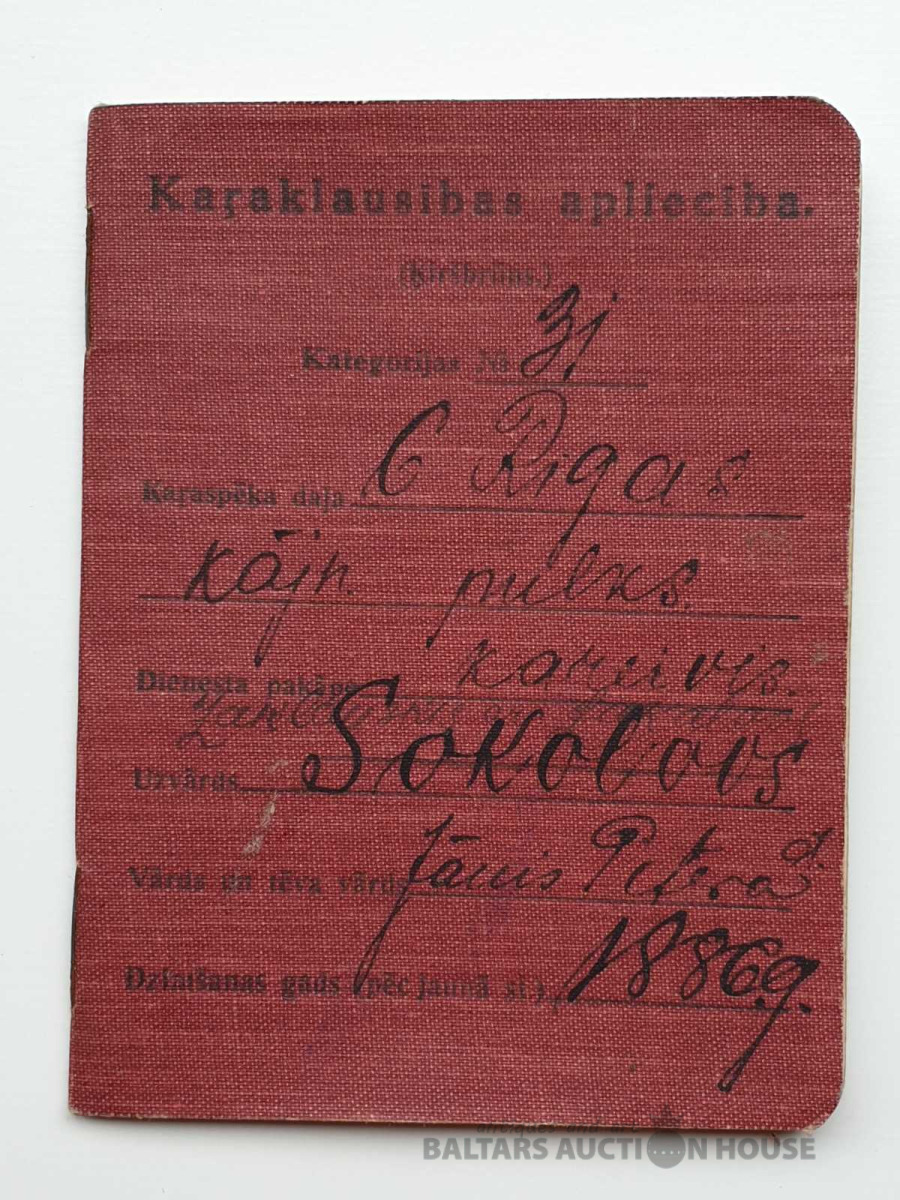 Kaŗaklausības apliecība.
(Ķiršbrūns.)
Kategorijas № 3j
Kaŗaspēka daļa 6 Rigas
kājn. pulks.
Dienesta pakāpe kareivis.
Uzvārds Sokolovs
Vārds un tēva vārds Jānis Pētera d.
Dzimšanas gads (pēc jaunā st.) 1886.g.
BALTARS AUCTION HOUSE